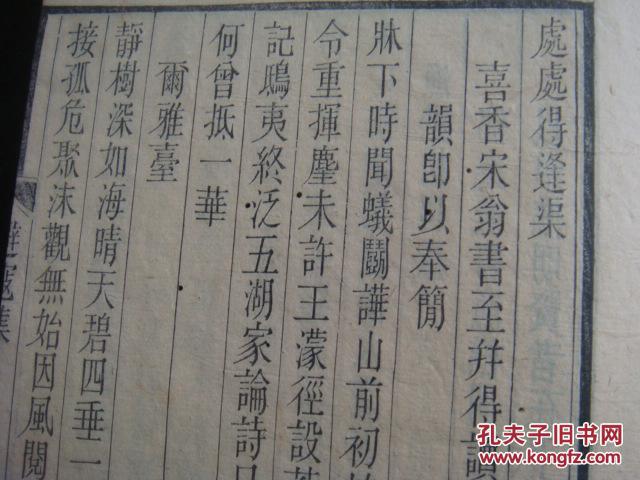 處處得逢渠
喜香宋翁書至幷得讀
韻卽以奉簡
牀下時聞蟻鬭譁山前初
令重揮麈未許王濛徑設茗
記鴟夷終泛五湖家論詩只
何曾抵一華
爾雅臺
靜樹深如海晴天碧四垂一
接孤危聚沫觀無始因風閱
避寇集
孔夫子旧书网
KONGFZ.COM